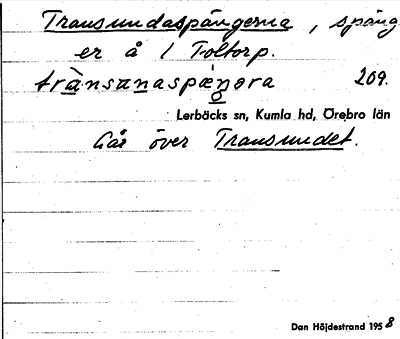 Transundaspångerna, spång
er å 1 Toltorp.
trànsu̲naspæŋo̲ra 209.
Lerbäcks sn, Kumla hd, Örebro län
Går över Transundet.
Dan Höjdestrand 1958